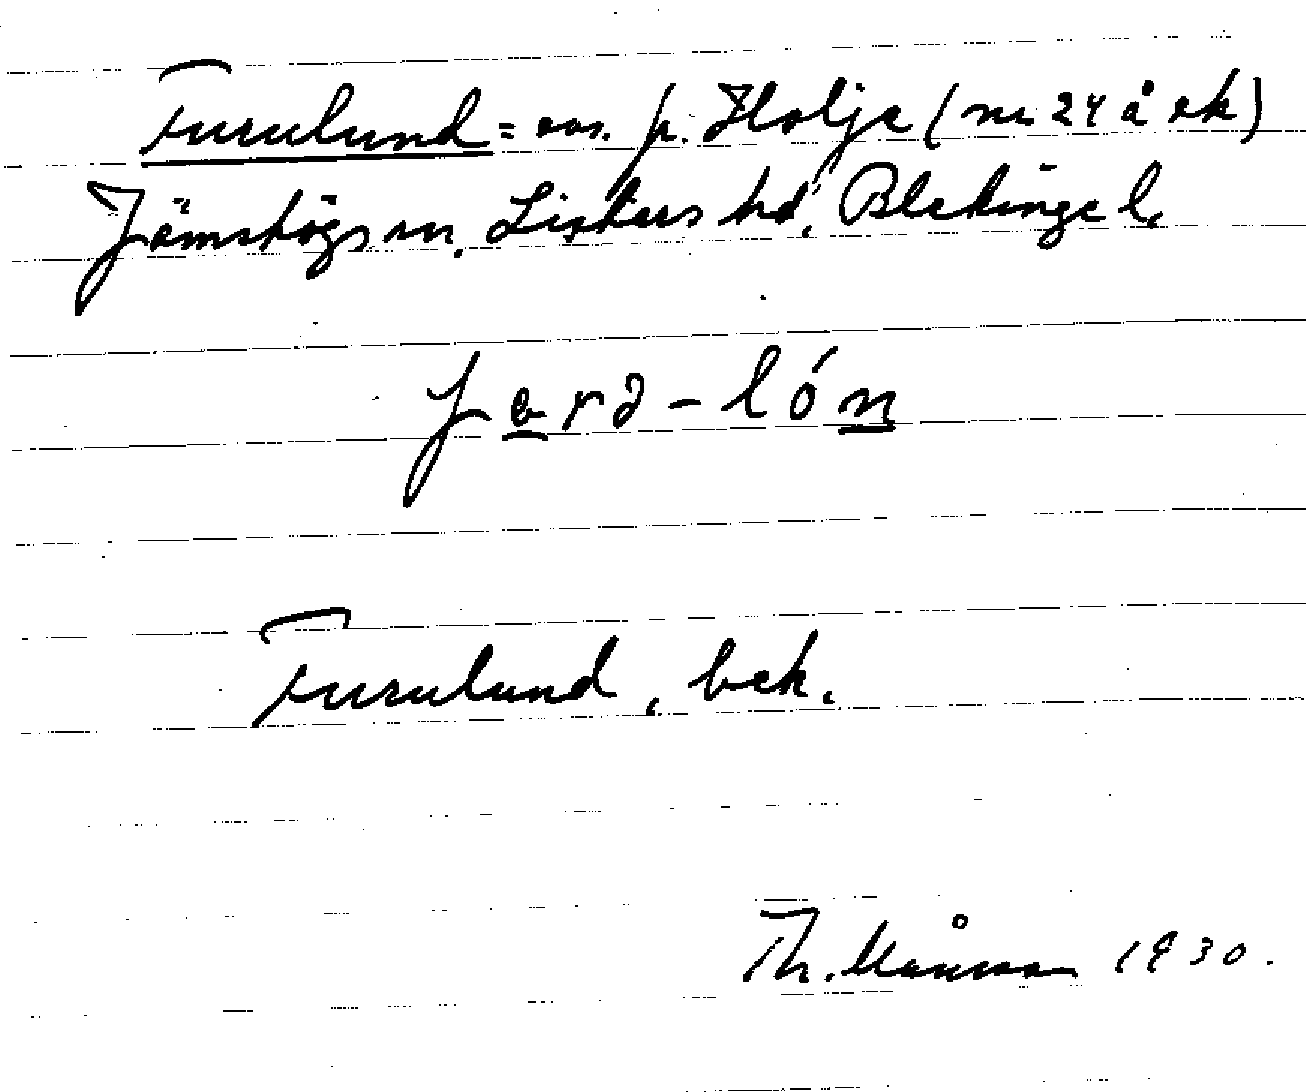 Furulund = avs. p. Holje (nr 24 å ek)
Jämshögs sn. Listers hd, Blekinge l.
farə-lón
Furulund, bek.
Th. Månsson 1930.